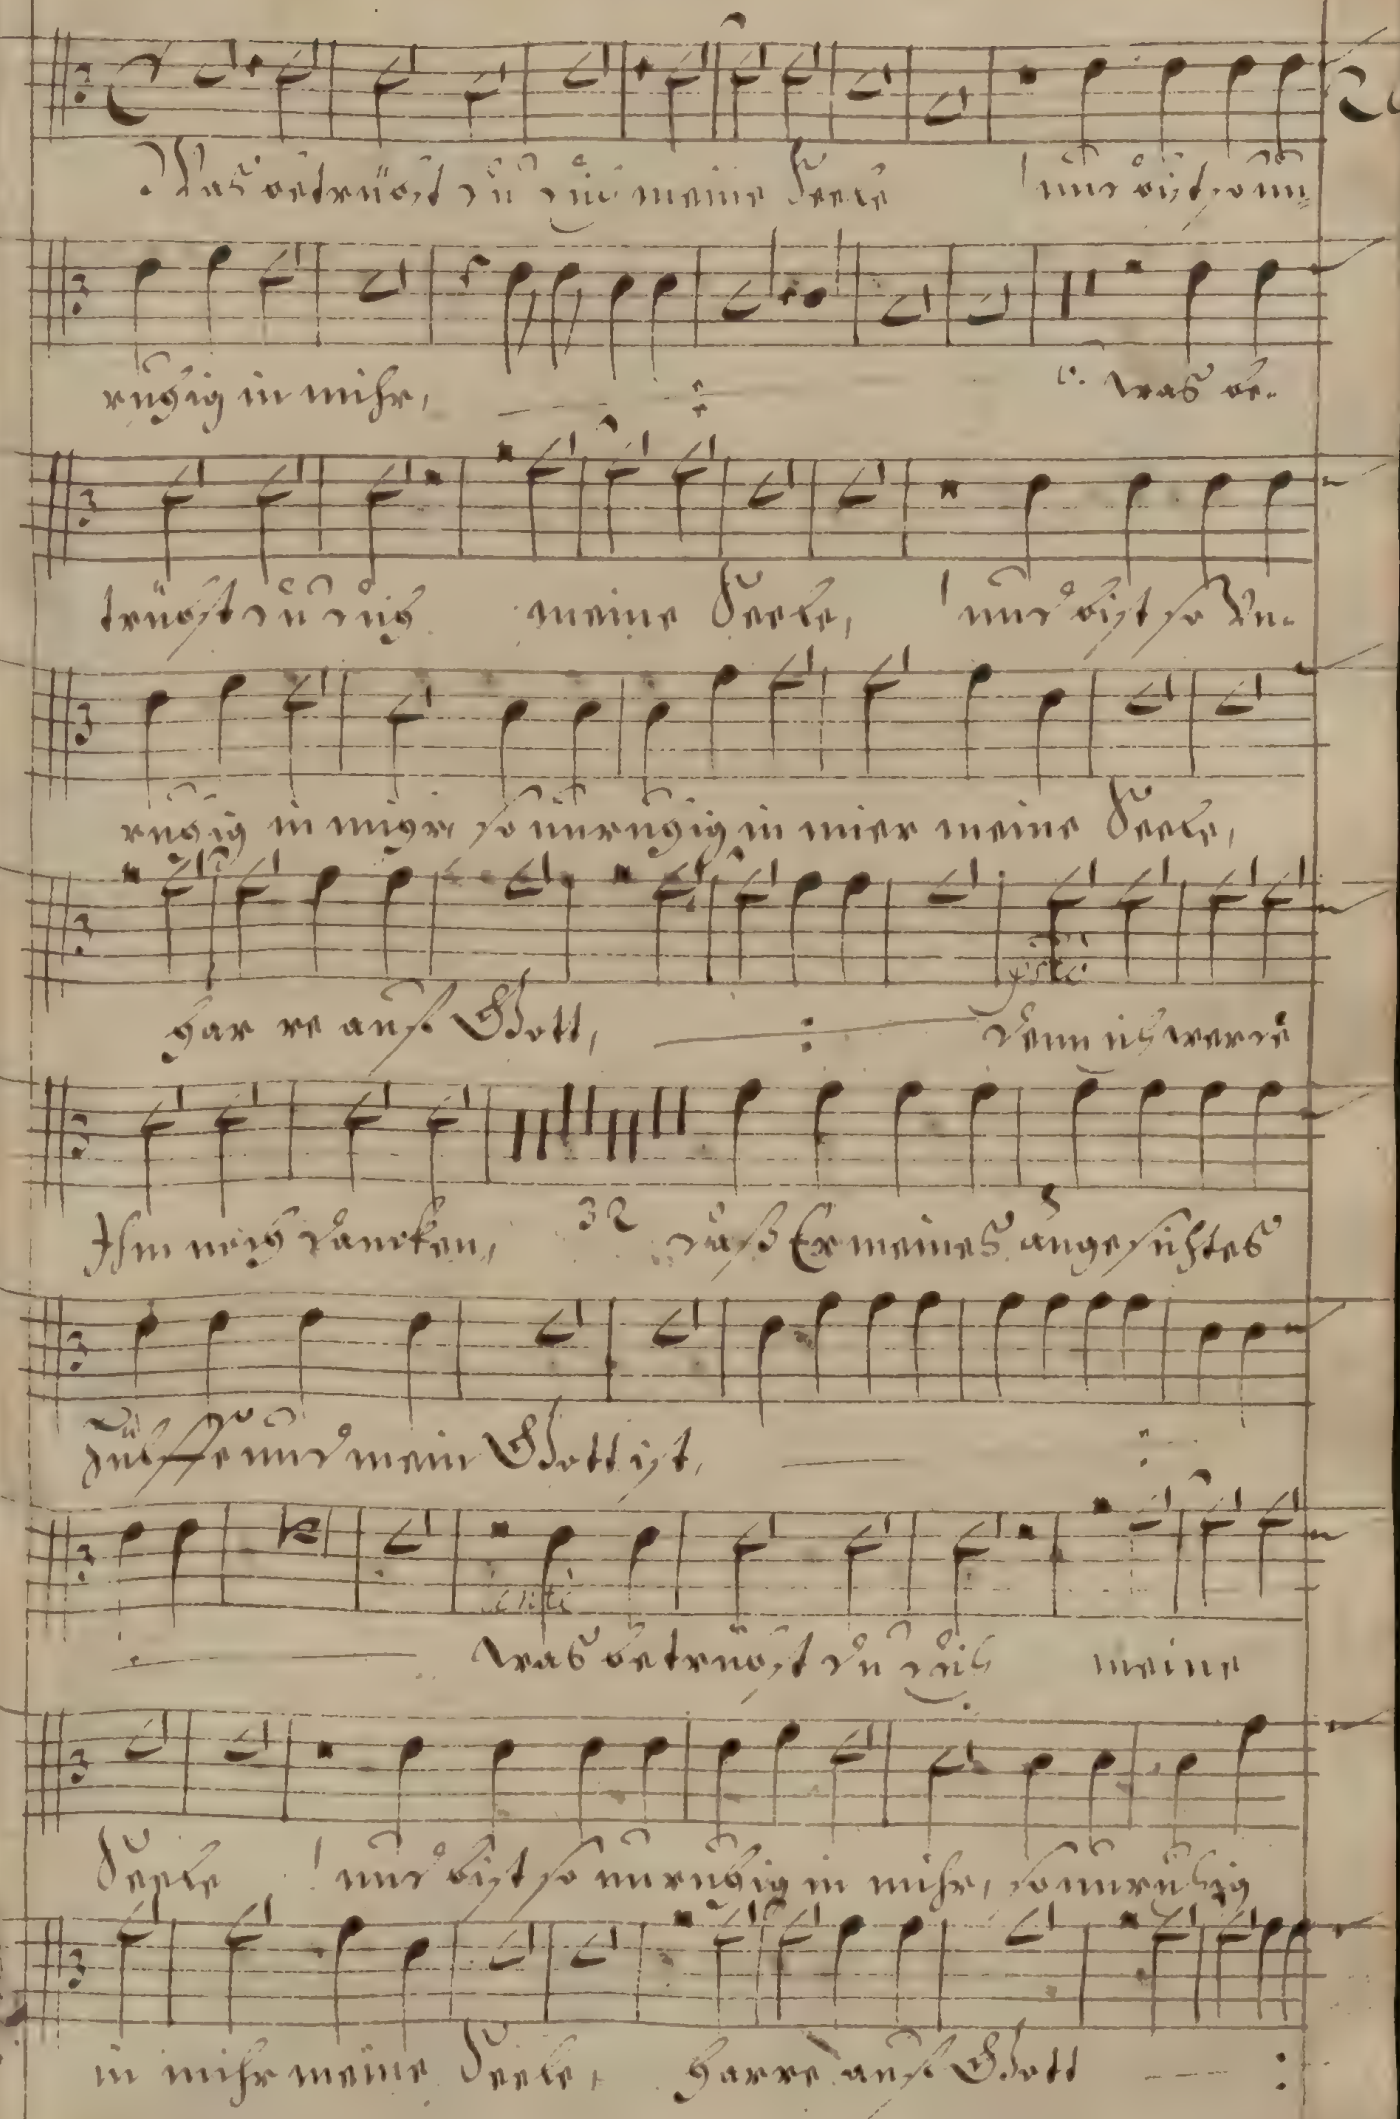 Was betrübst du dich meine Seele und bist so un=
ruhig in mihr, : was be-
trübst du dich meine Seele, und bist so Un-
ruhig in mihr, so unruhig in mier meine Seele,
har re auf Gott, : denn ich werde
Ihm noch dancken, 32 daß Er meines angesichtes
hülffe und mein Gott ist, :
was betrübst du dich meine
Seele und bist so unruhig in mihr, so unruhig
in mihr meine Seele, harre auf Gott :